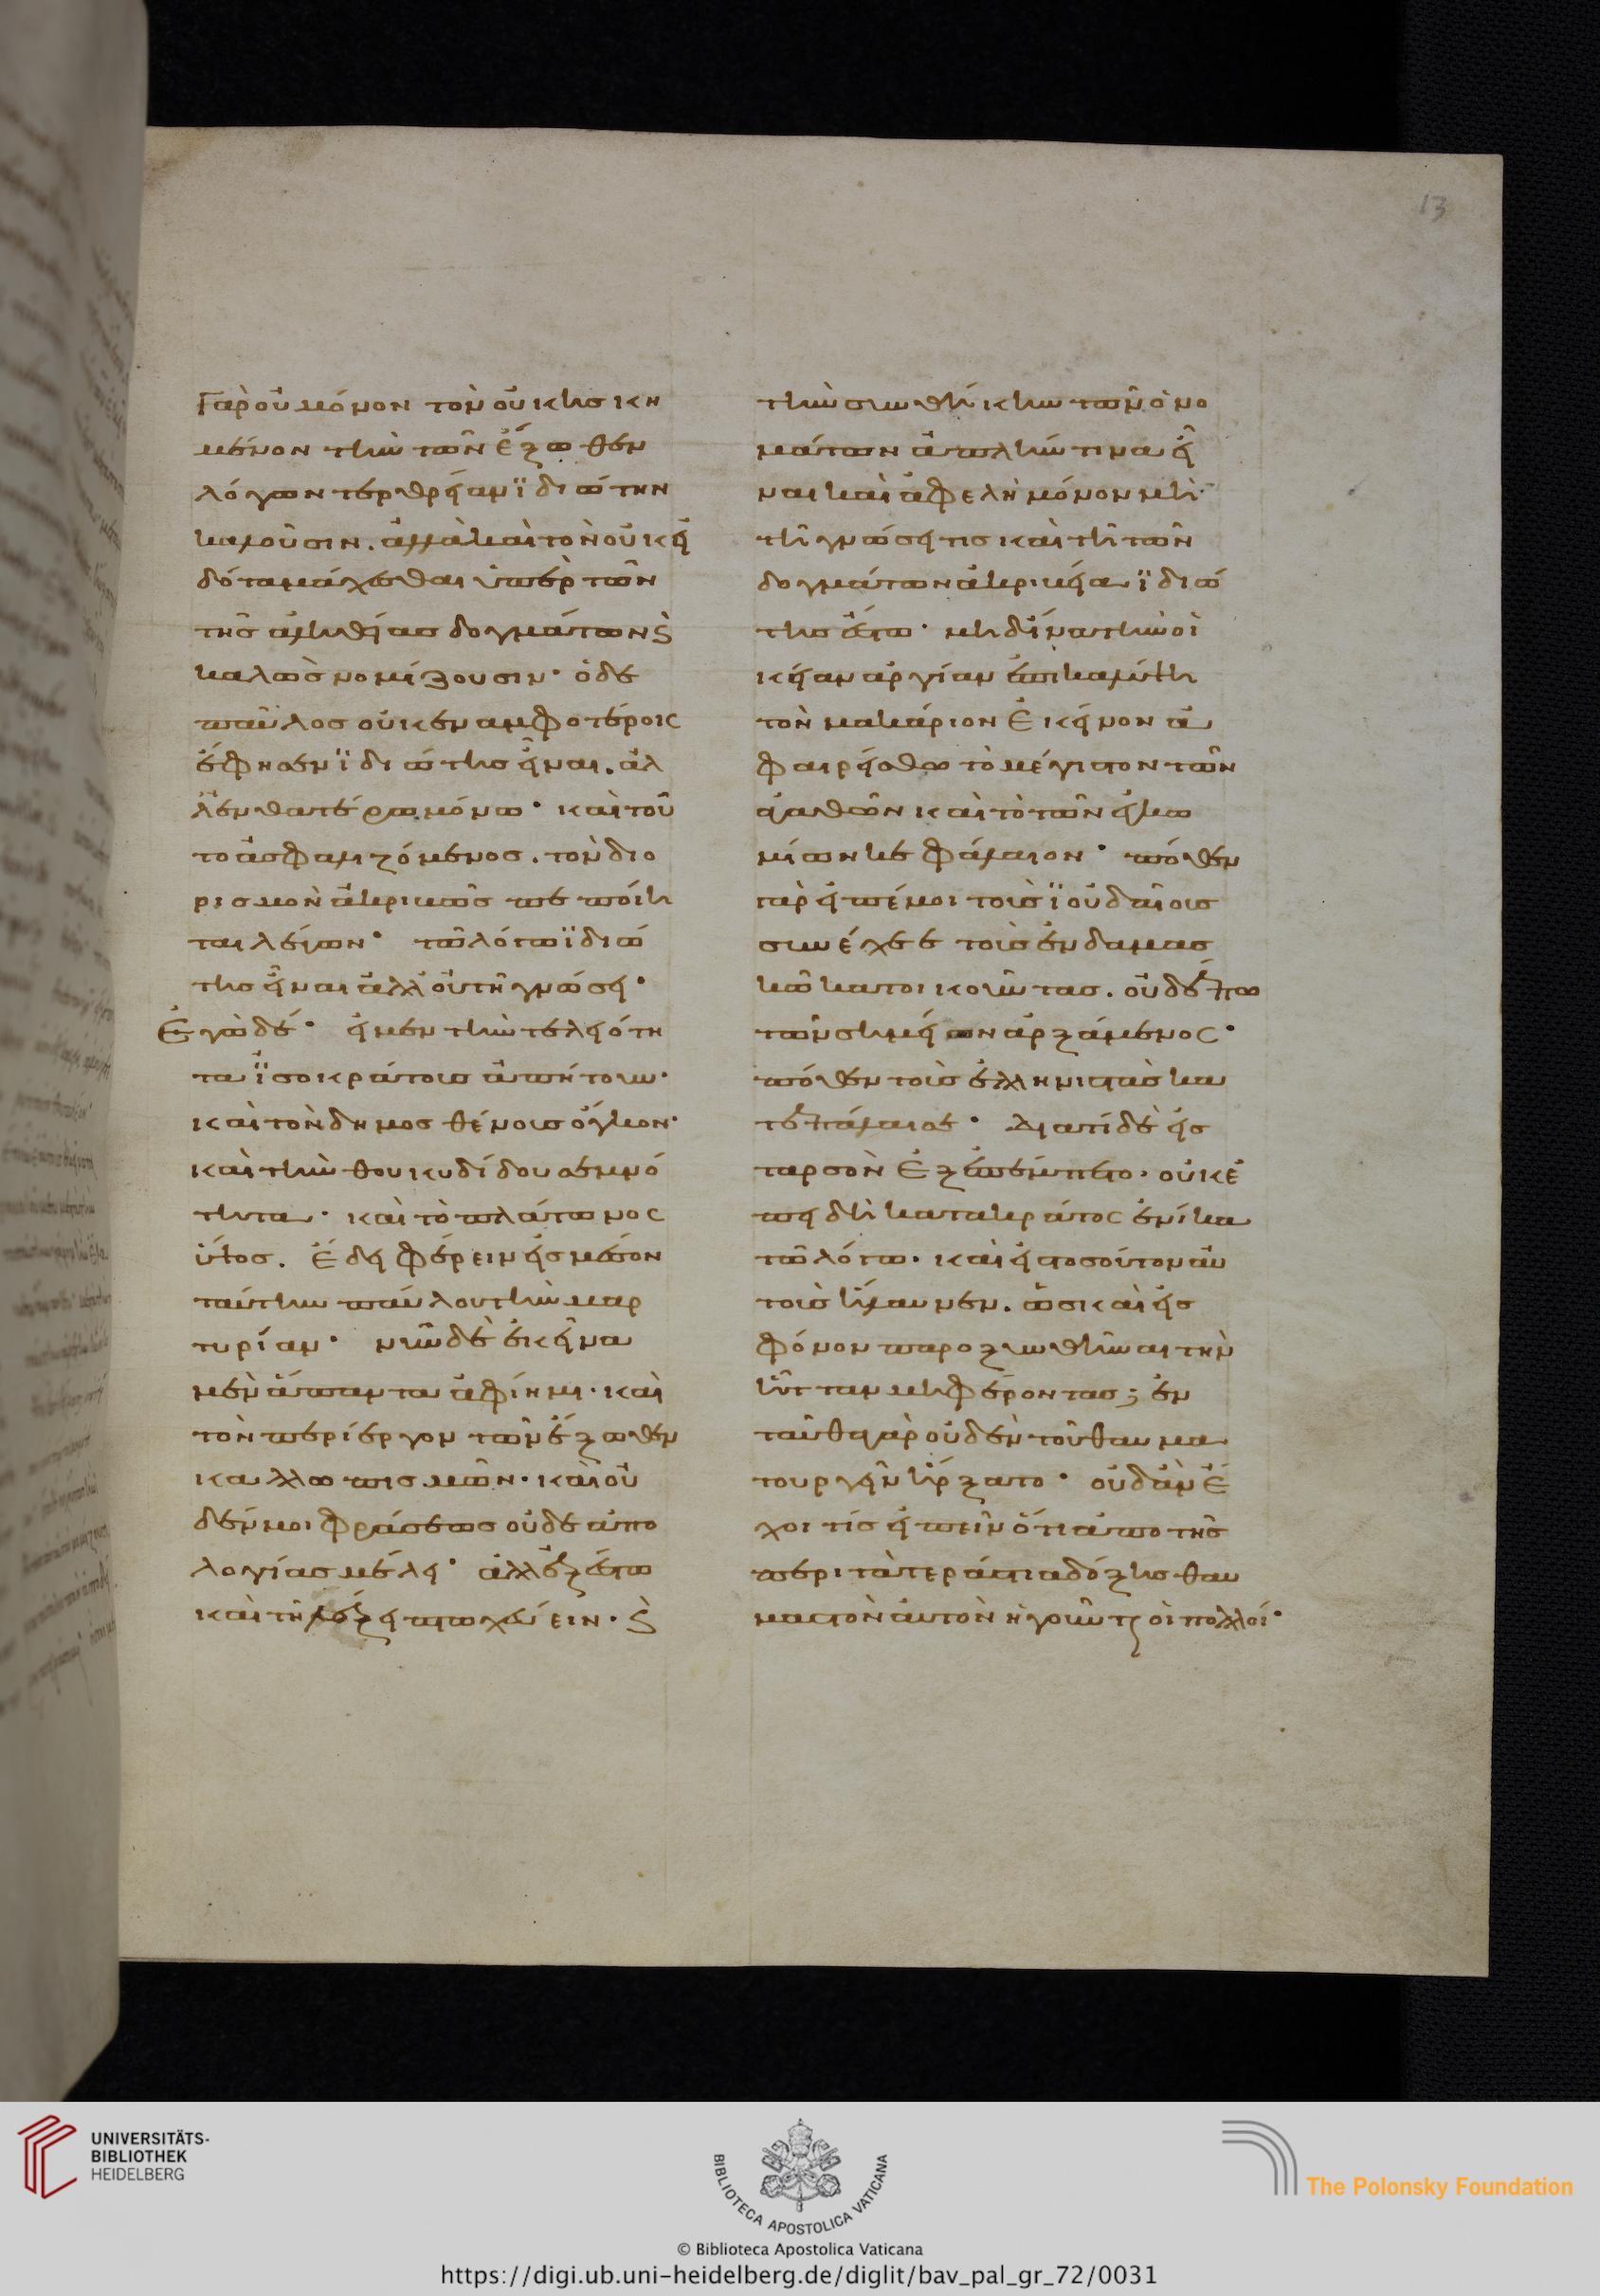 γὰρ οὐ μόνον τὸν οὐκ ἠσκη
μένον τὴν τῶν ἔξωθεν
λόγων τερθρείαν ϊδιώτην
καλοῦσιν. ἀλλὰ καὶ τὸν οὐκ εἰ
δότα μάχεσθαι ὑπὲρ τῶν
τῆς ἀληθείας δογμάτων ϛ̀
καλῶς νομίζουσιν· ὁ δὲ
παῦλος οὐκ ἐν ἀμφοτέροις
ἔφησεν ϊδιώτης εἶναι. ἀλ
λ' ἐν θατέρω μόνω· καὶ τοῦ
το ἀσφαλιζόμενος. τὸν διο
ρισμὸν ἀκριβῶς πεποίη
ται λέγων· τῶ λόγω ϊδιώ
της εἶναι ἀλλ' οὐ τῆ γνώσει·
Ἐγὼ δέ· εἰ μὲν τὴν τελειότη
τα ϊσοκράτους ἀπήτουν·
καὶ τὸν δημοσθένους ὄγκον·
καὶ τὴν θουκυδίδου σεμνό
τητα· καὶ τὸ πλάτωνος
ὕψος. ἔδει φέρειν εἰς μέσον
ταύτην παύλου τὴν μαρ
τυρίαν· νῦν δὲ ἐκεῖνα
μὲν ἅπαντα ἀφίημι· καὶ
τὸν περίεργον τῶν ἔξωθεν
καλλωπισμῶν· καὶ οὐ
δέν μοι φράσεως οὐδὲ ἀπο
λογίας μέλει· ἀλλ' ἐξέστω
καὶ τῆ λέξει πτωχεύειν· ϛ̀
13
τὴν συνθήκην τῶν ὀνο
μάτων ἁπλήν τινα εἶ
ναι καὶ ἀφελῆ μόνον μὴ
τῆ γνώσει τις καὶ τῆ τῶν
δογμάτων ἀκριβεία ϊδιώ
της ἔστω· μηδ' ἵνα τὴν οἰ
κείαν ἀργίαν ἐπικαλύψη
τὸν μακάριον ἐκεῖνον ἀ
φαιρείσθω τὸ μέγιστον τῶν
ἀγαθῶν καὶ τὸ τῶν ἐγκω
μίων κεφάλαιον· πόθεν
γὰρ εἰπέ μοι τοὺς ϊουδαίους
συνέχεε τοὺς ἐν δαμασ
κῶ κατοικοῦντας. οὐδέπω
τῶν σημείων ἀρξάμενος·
πόθεν τοὺς ἑλληνιστὰς κα
τεπάλαισε· διατί δὲ εἰς
ταρσὸν ἐξεπέμπετο· οὐκ ἐ
πειδὴ κατακράτος ἐνίκα
τῶ λόγω· καὶ εἰς τοσοῦτον αὐ
τοὺς ἤλαυνεν. ὡς καὶ εἰς
φόνον παροξυνθῆναι τὴν
ἧτταν μὴ φέροντας; ἐν
ταῦθα γὰρ οὐδὲν τοῦ θαυμα
τουργεῖν ἤρξατο· οὐδ' ἂν ἔ
χοι τίς εἰπεῖν ὅτι ἀπὸ τῆς
περὶ τὰ τεράστια δόξης θαυ
μαστὸν αὐτὸν ἡγοῦντο οἱ πολλοί·
UNIVERSITÄTS-
BIBLIOTHEK
HEIDELBERG
BIBLIOTECA APOSTOLICA VATICANA
The Polonsky Foundation
© Biblioteca Apostolica Vaticana
https://digi.ub.uni-heidelberg.de/diglit/bav_pal_gr_72/0031